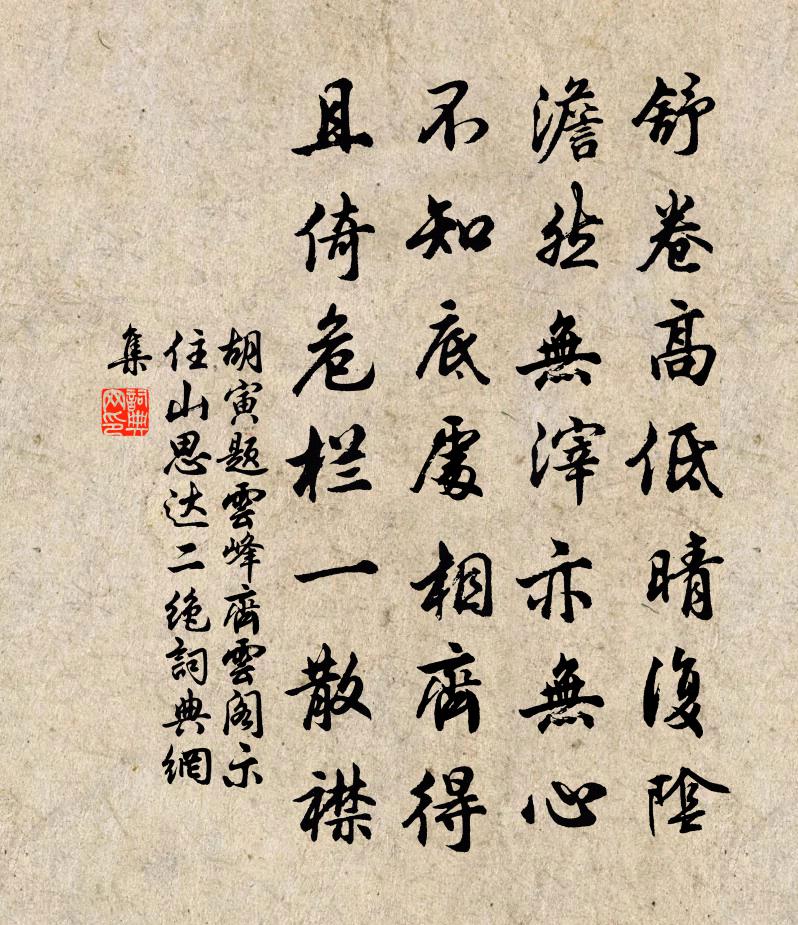 舒卷高低晴復陰
澹然無滓亦無心
不知底處相齊得
且倚危栏一散襟
胡寅题雲峰齊雲阁示
住山思达二绝詞典網
集
詞典網印